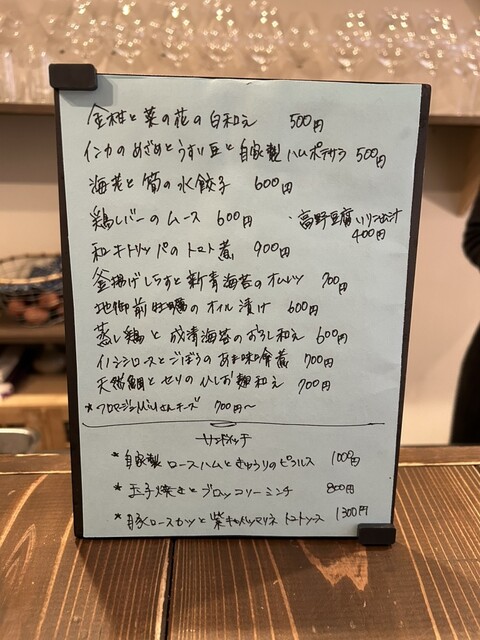 金柑と菜の花の白和え 500円
インカのめざめとうすい豆と自家製ハムポテサラ 500円
海老と筍の水餃子 600円
鶏レバーのムース 600円
・高野豆腐いりこ出汁
400円
和牛トリッパのトマト煮 900円
釜揚げしらすと新青海苔のオムレツ 700円
地御前牡蠣のオイル漬け 600円
蒸し鶏と 青海苔のおろし和え 600円
イノシシロースとごぼうの 味噌煮 700円
天然鯛とセリのひしお麹和え 700円
*フロマージュ さんチーズ 700円〜
サンドイッチ
*自家製ロースハムときゅうりのピクルス 1000円
*玉子焼きとブロッコリーミンチ 800円
*豚ロースカツと紫キャベツマリネ トマトソース 1300円